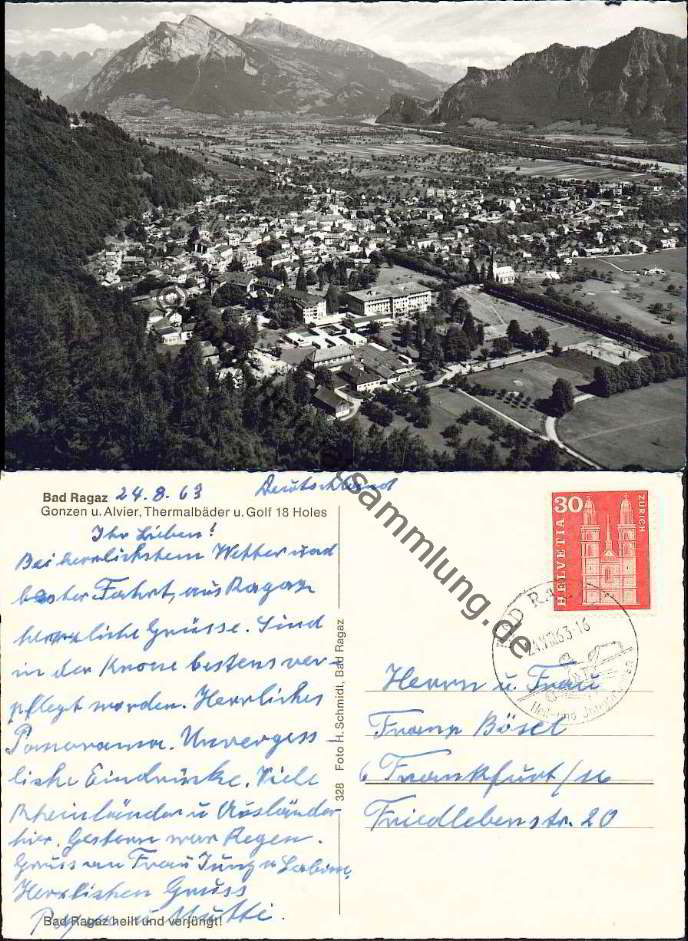 Bad Ragaz 24.8.63 Deutschland
Gonzen u. Alvier, Thermalbäder u. Golf 18 Holes
Ihr Lieben!
Bei herrlichstem Wetter und
bester Fahrt, aus Ragaz
herzliche Grüsse. Sind
in der Krone bestens ver-
pflegt worden. Herrliches
Panorama. Unvergess-
liche Eindrücke. Viele
Rheinländer u Ausländer
hier. Gestern war Regen.
Gruss an Frau Jung u
Herzlichen Gruss
u Mutti.
Bad Ragaz heilt und verjüngt!
328 Foto H. Schmidt, Bad Ragaz
30
HELVETIA
ZÜRICH
BAD RAGAZ
63-16
Herrn u. Frau
Franz Bösel
6 Frankfurt/M
Friedlebenstr. 20
sammlung.de